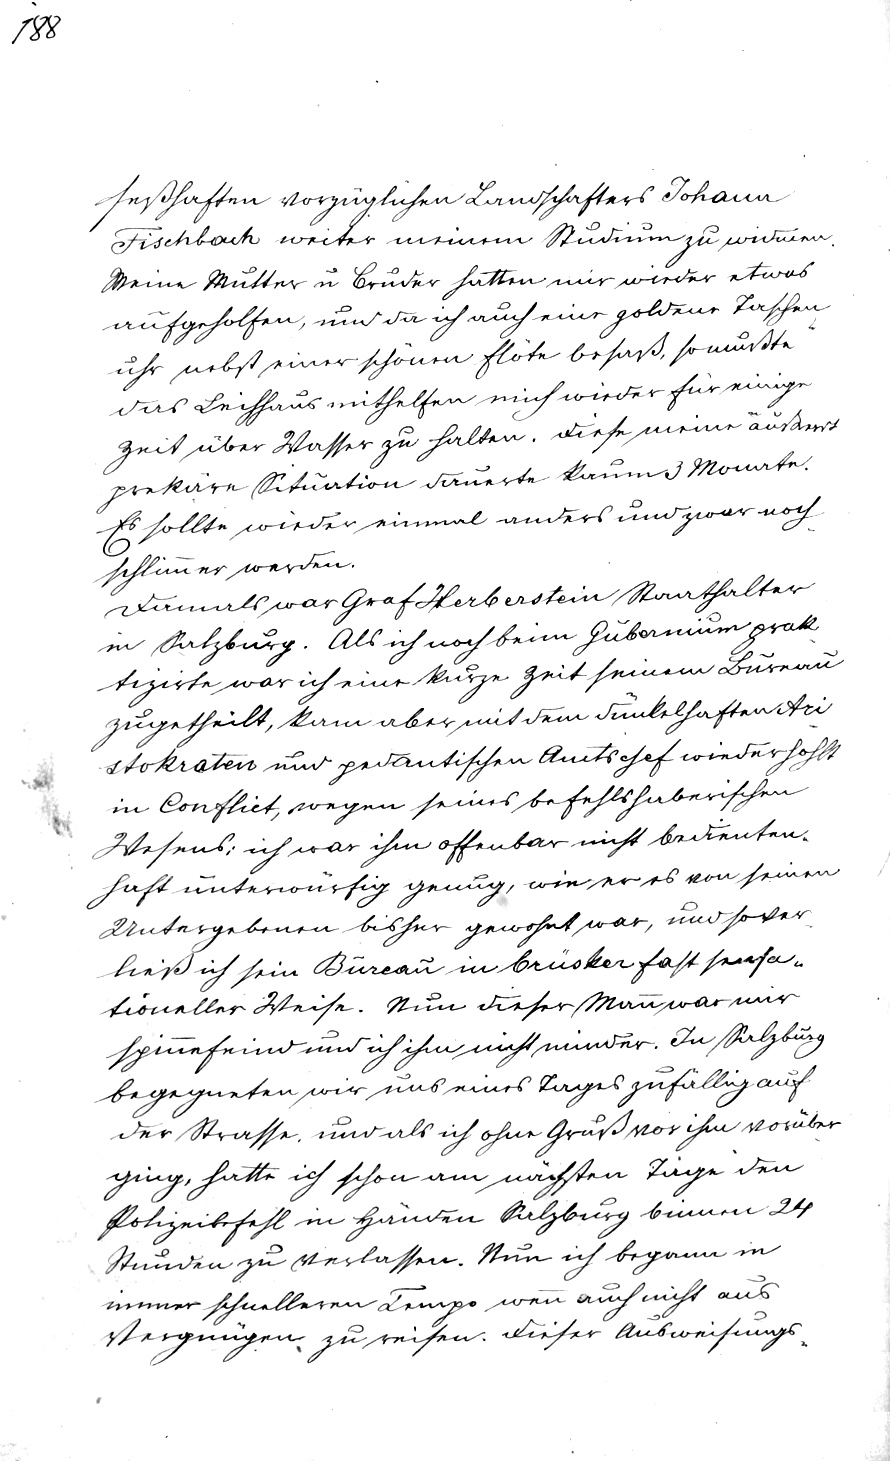 188
seßhaften vorzüglichen Landschafters Johann
Fischbach weiter meinem Studium zu widmen.
Meine Mutter u Bruder hatten mir wieder etwas
aufgeholfen, und da ich auch eine goldene Taschen
uhr nebst einer schönen Flöte besaß, so mußte
das Leihhaus mithelfen mich wieder für einige
Zeit über Wasser zu halten. Diese meine äußerst
prekäre Situation dauerte kaum 3 Monate.
Es sollte wieder einmal anders und zwar noch
schlim̅er werden.
Damals war Graf Herberstein Staathalter
in Salzburg. Als ich noch beim Gubernium prak
tizirte war ich eine kurze Zeit seinem Bureau
zugetheilt, kam aber mit dem dünkelhaften Ari
stokraten und pedantischen Amtschef wiederhohlt
in Conflict, wegen seines befehlshaberischen
Wesens; ich war ihm offenbar nicht bedienten-
haft unterwürfig genug, wie er es von seinen
Untergebenen bisher gewohnt war, und so ver-
ließ ich sein Büreau in brüsker fast sensa-
tioneller Weise. Nun dieser Man̅ war mir
spin̅efeind und ich ihm nicht minder. In Salzburg
begegneten wir uns eines Tages zufällig auf
der Strasse, und als ich ohne Gruß vor ihm vorüber
ging, hatte ich schon am nächsten Tage den
Polizeibefehl in Händen Salzburg binnen 24
Stunden zu verlassen. Nun ich begann in
immer schnelleren Tempo wen̅ auch nicht aus
Vergnügen zu reisen. Dieser Ausweisungs-